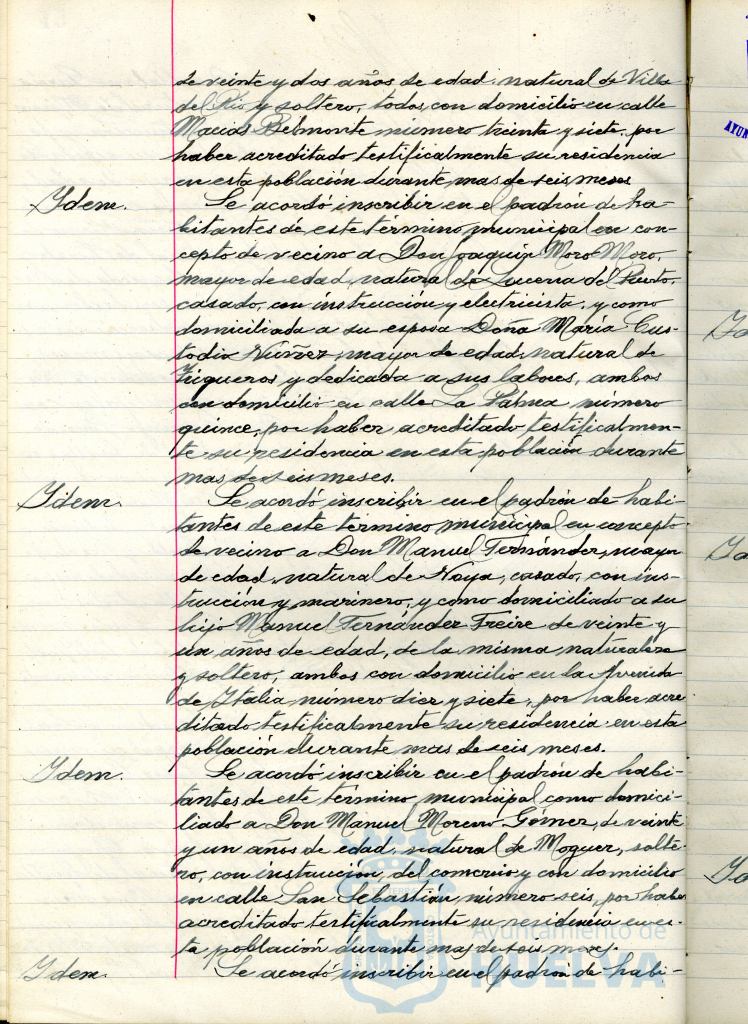 de veinte y dos años de edad, natural de Villa
del Rio y soltero, todos con domicilio en calle
Macias Belmonte número treinta y siete, por
haber acreditado testificalmente su residencia
en esta población durante mas de seis meses
Ydem. Se acordó inscribir en el padrón de ha-
bitantes de este término municipal en con-
cepto de vecino a Don Joaquin Moro Moro,
mayor de edad, natural de Lucena del Puerto,
casado, con instrucción y electricista, y como
domiciliada a su esposa Doña María Cus-
todia Núñez, mayor de edad, natural de
Trigueros y dedicada a sus labores, ambos
con domicilio en calle La Palma número
quince, por haber acreditado testificalmen-
te su residencia en esta población durante
mas de seis meses.
Ydem. Se acordó inscribir en el padrón de habi-
tantes de este término municipal en concepto
de vecino a Don Manuel Fernández, mayor
de edad, natural de Noya, casado, con ins-
trucción y marinero, y como domiciliado a su
hijo Manuel Fernández Freire de veinte y
un años de edad, de la misma naturaleza
y soltero, ambos con domicilio en la Avenida
de Italia número diez y siete, por haber acre-
ditado testificalmente su residencia en esta
población durante mas de seis meses.
Ydem. Se acordó inscribir en el padrón de habi-
tantes de este término municipal como domici-
liado a Don Manuel Moreno Gómez, de veinte
y un años de edad, natural de Moguer, solte-
ro, con instrucción, del comercio y con domicilio
en calle San Sebastián, número seis, por haber
acreditado testificalmente su residencia en es-
ta población durante mas de seis meses.
Ydem. Se acordó inscribir en el padrón de habi-
Ayuntamiento de
HUELVA